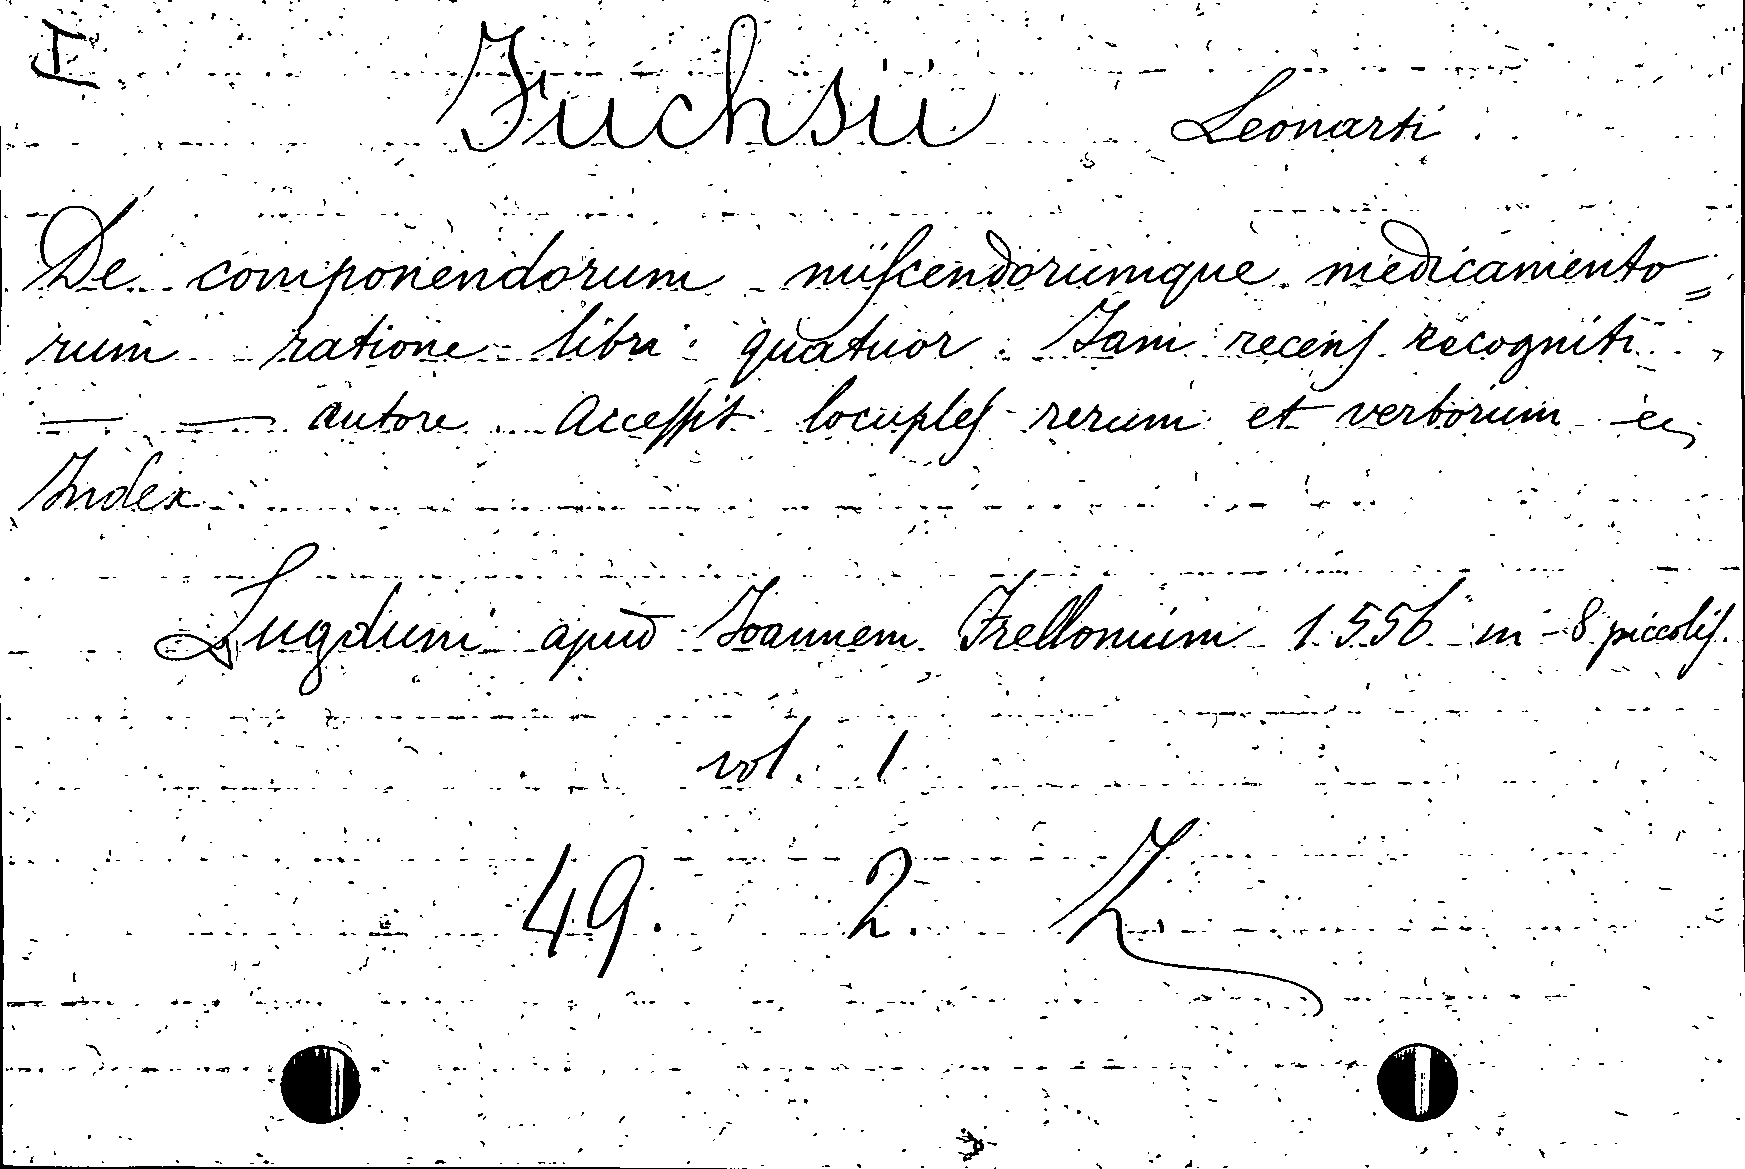 I
Fuchsii Leonarti
De componendorum miſcendorumque medicamento=
rum ratione libri quatuor. Iam recenſ recogniti
— — autore. Acceſſit locupleſ rerum et verborum ec,
Index
Lugduni apud Ioannem Frellonium 1556 in-8 piccoliſ.
vol. 1
49. 2. Z